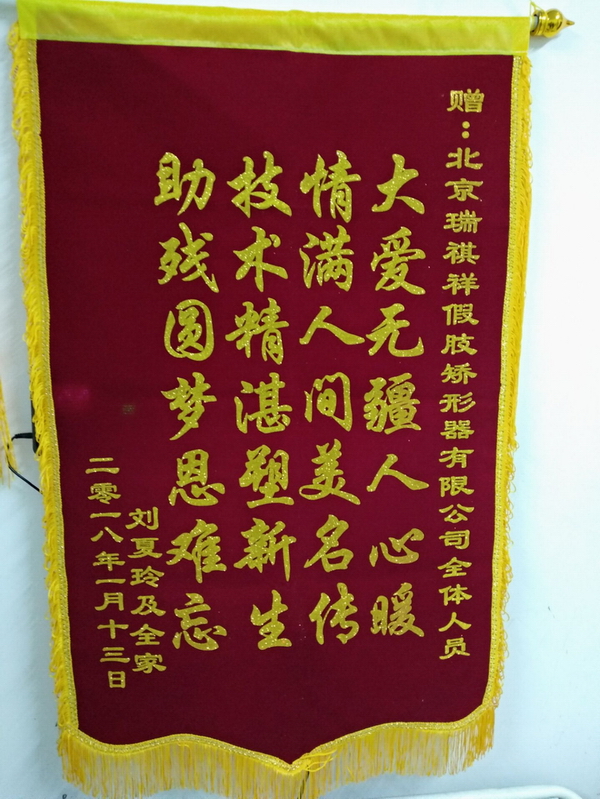 赠：北京瑞祺祥假肢矫形器有限公司全体人员
大爱无疆人心暖
情满人间美名传
技术精湛塑新生
助残圆梦恩难忘
刘夏玲及全家
二零一八年一月十三日